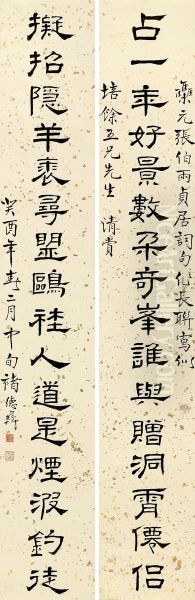 集元張伯雨貞居詞句化長聯寫似
占一年好景數朵奇峯誰與贈洞霄僊侶
培餘五兄先生 清賞
擬招隱羊裘尋盟鷗社人道是煙波釣徒
癸酉年春二月中旬 褚德彝